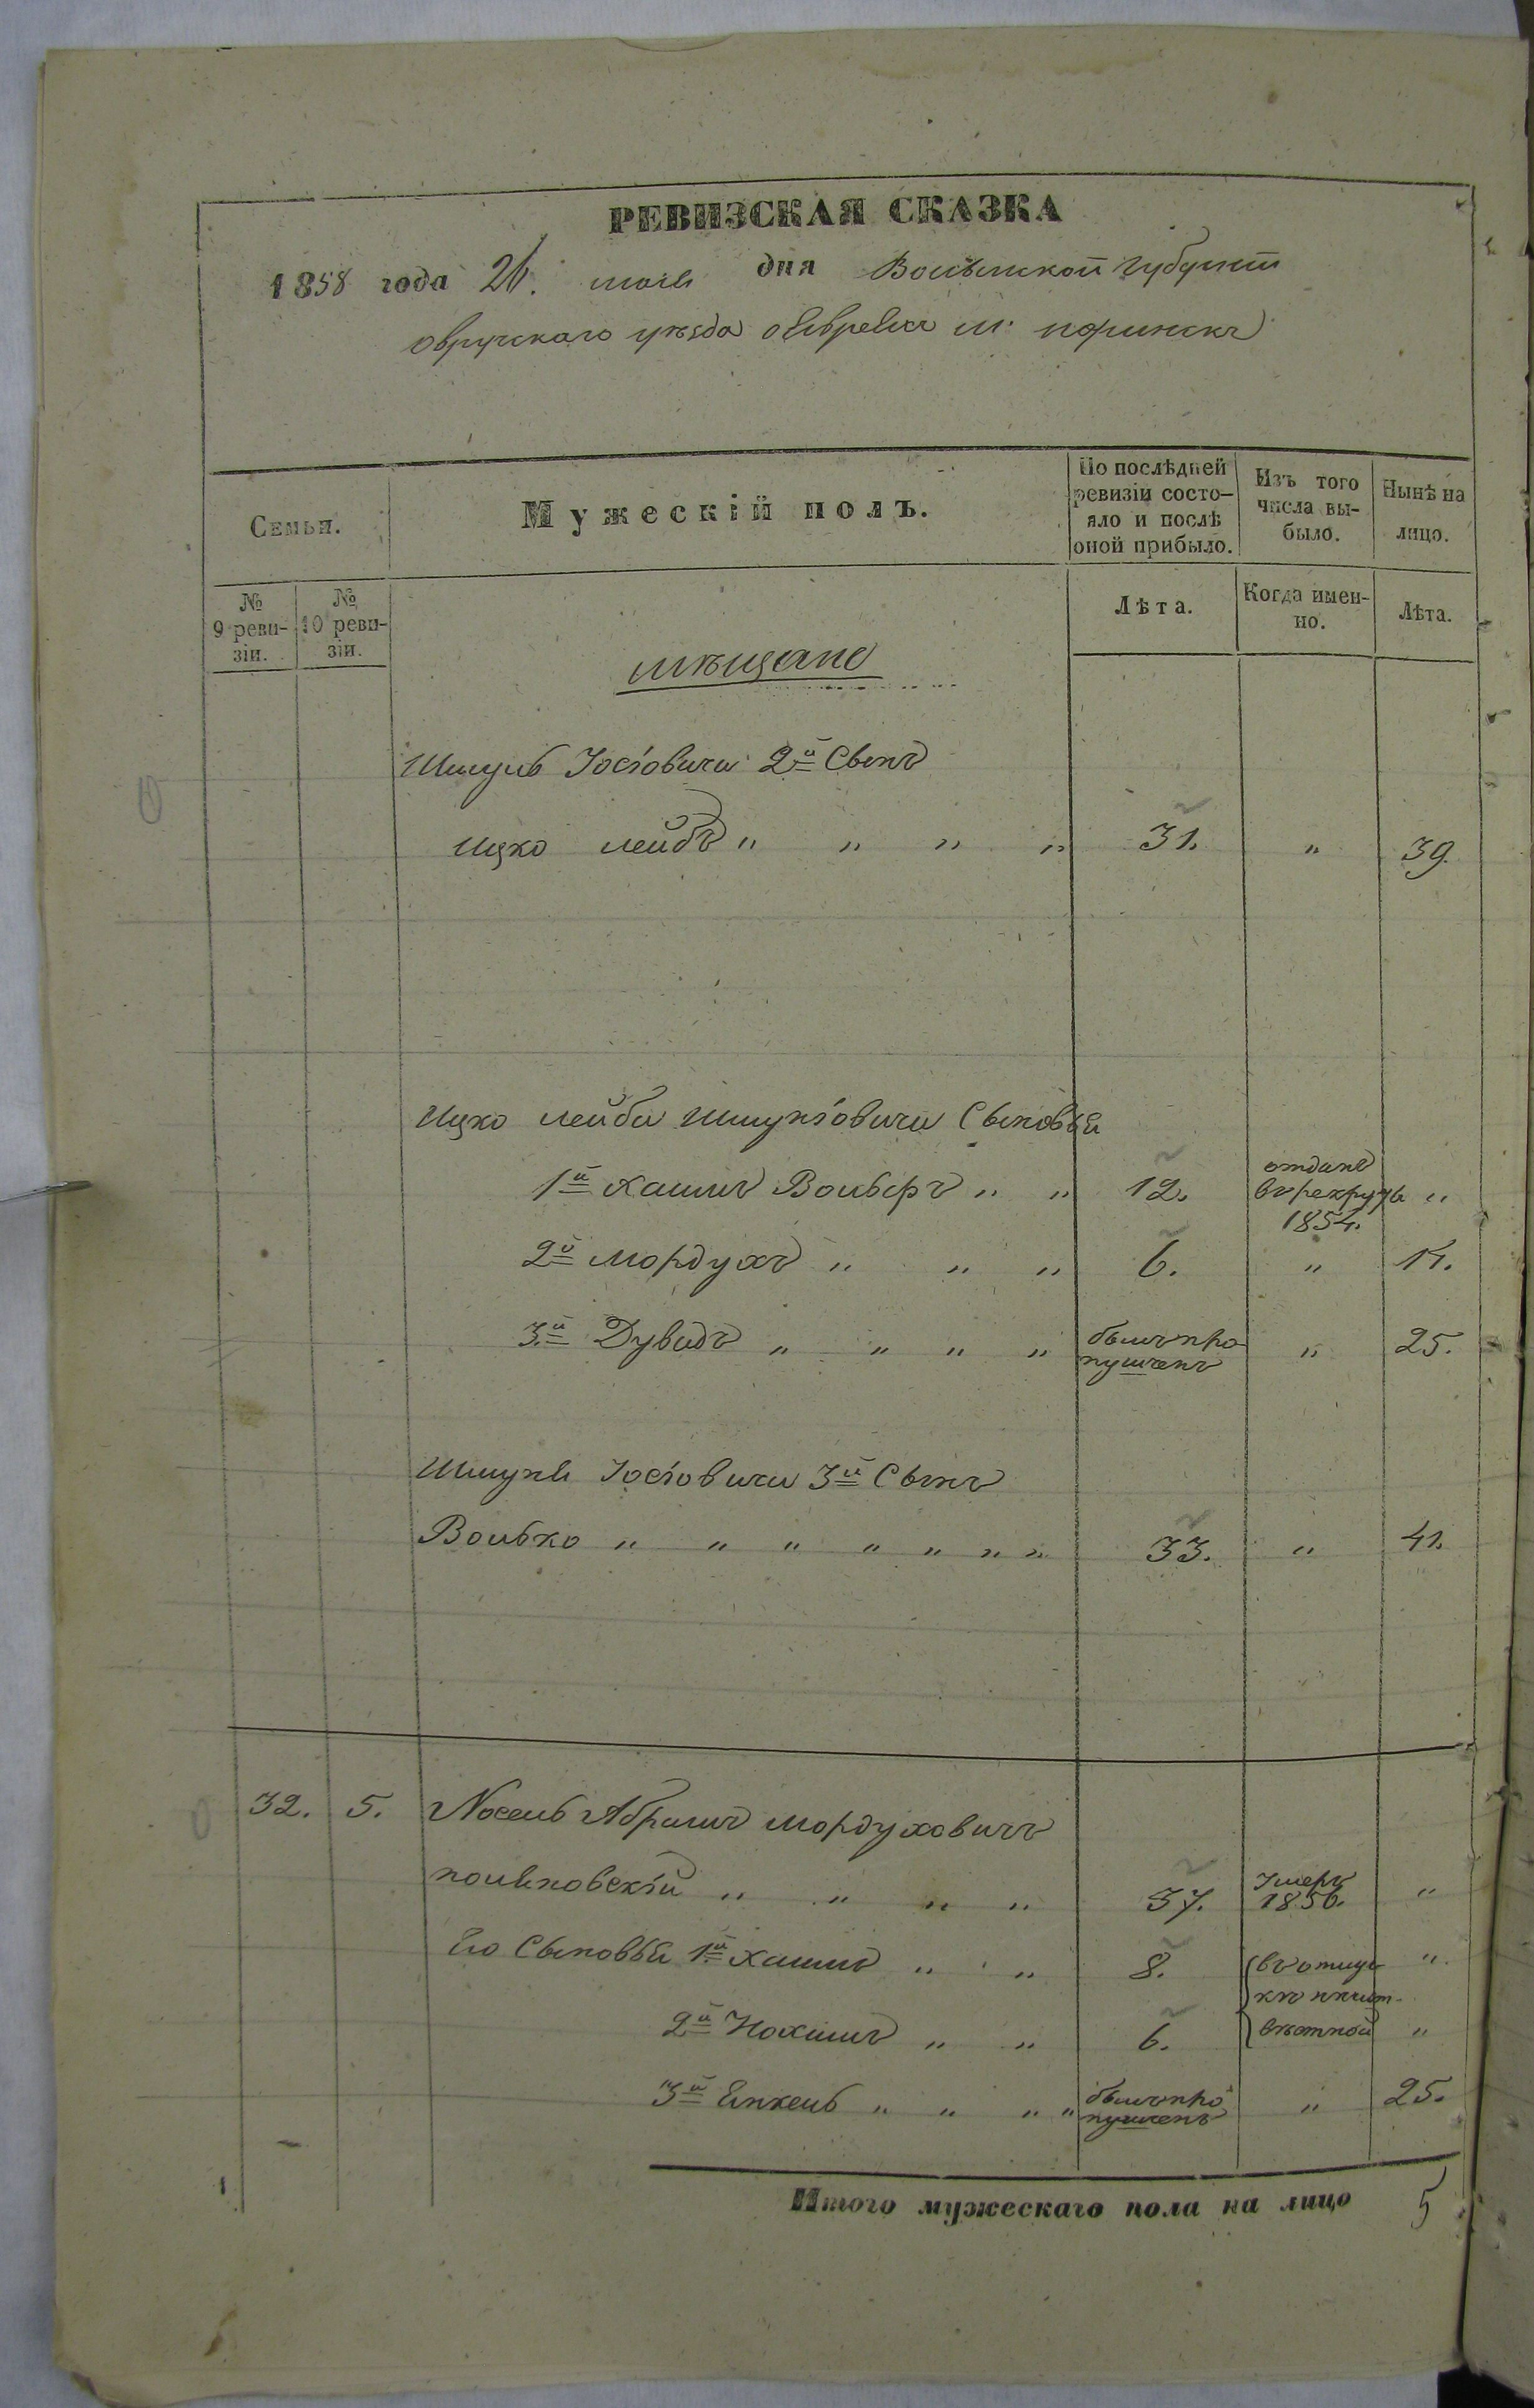 РЕВИЗСКАЯ СКАЗКА
1858 года 26. маія дня Волынской губерніи
овручскаго уѣзда о Евреяхъ м. норинскъ
Семьи.
Мужескій полъ.
По послѣдней ревизіи состо-
яло и послѣ
оной прибыло.
Изъ того
числа вы-
было.
Нынѣ на
лицо.
№
9 реви-
зіи.
№
10 реви-
зіи.
Лѣта.
Когда имен-
но.
Лѣта.
мѣщане
Шмуля Іосіовича 2й Сынъ
Ицко Лейбъ " " " " 31. " 39.
Ицко Лейби Шмуліовича Сыновья
1й Хаимъ Вольфъ " " 12. отданъ
в рекруты "
1854.
2й Мордухъ " " " 6. " 14.
3й Дувидъ " " " " былъ про
пущенъ " 25.
Шмуля Іосіовича 3й Сынъ
Волько " " " " " " " 33. " 41.
32. 5. Носель Абрамъ Мордуховичъ
поляновскій " " " " 37. Умеръ
1856. "
Его Сыновья 1й Хаимъ " " 8. "
2й Нохимъ " " 6. "
3й Янкель " " " " былъ про
пущенъ " 25.
Итого мужескаго пола на лицо 5